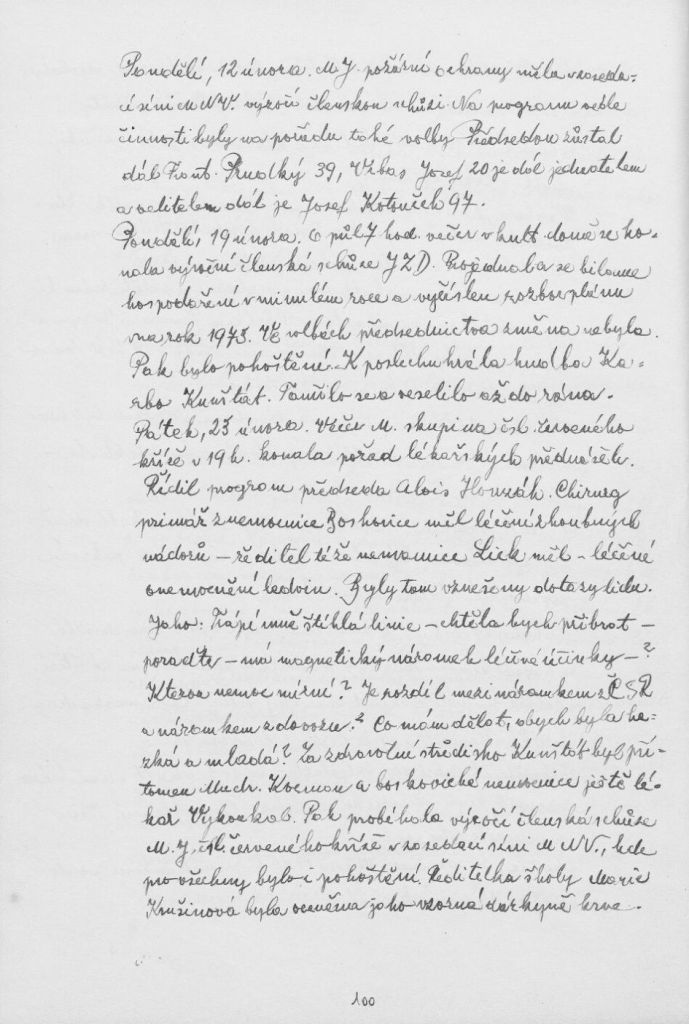 Pondělí, 12 února. M.J. požární ochrany měla v zaseda-
cí síni MNV. výročí členskou schůzi. Na pogramu vedle
činnosti byly na pořadu také volby. Předsedou zůstal
dál Frant. Prudký 39, Vrbas Josef 20 je dál jednatelem
a velitelem dál je Josef Kotouček 97.
Pondělí, 19 února. O půl 7 hod. večer v kult domě se ko-
nala výroční členská schůze JZD. Projednala se bilance
hospodaření v minulém roce a vyčíslen rozbor plánu
na rok 1973. Ve volbách předsednictva změna nebyla.
Pak bylo pohoštění. K poslechu hrála hudba Ka-
rbo Kunštát. Tančilo se a veselilo až do rána.
Pátek, 23 února. Večer M. skupina čsl. červeného
kříže v 19 h. konala pořad lékařských přednášek.
Řídil program předseda Alois . Chirurg
primář z nemocnice Boskovice měl léčení zhoubných
nádorů – ředitel téže nemocnice Lick měl – léčené
onemocnění ledvin. Byly tam vznešeny dotazy lidu.
Jako: Trápí mně štíhlá linie – chtěla bych přibrat –
poraďte – má magnetický náramek léčivé účinky – ?
Kterou nemoc mírní? Je rozdíl mezi náramkem z ČSR
a náramkem z dovozu? Co mám dělat, abych byla he-
zká a mladá? Za zdravotní středisko Kunštát byl pří-
tomen Mudr. a boskovické nemocnice ještě lé-
kař . Pak proběhala výročí členská schůze
M.J. čsl. červeného kříže v zasedací síni MNV., kde
pro všechny bylo i pohoštění. Ředitelka školy Marie
Krušinová byla oceněna jako vzorná dárkyně krve.
100